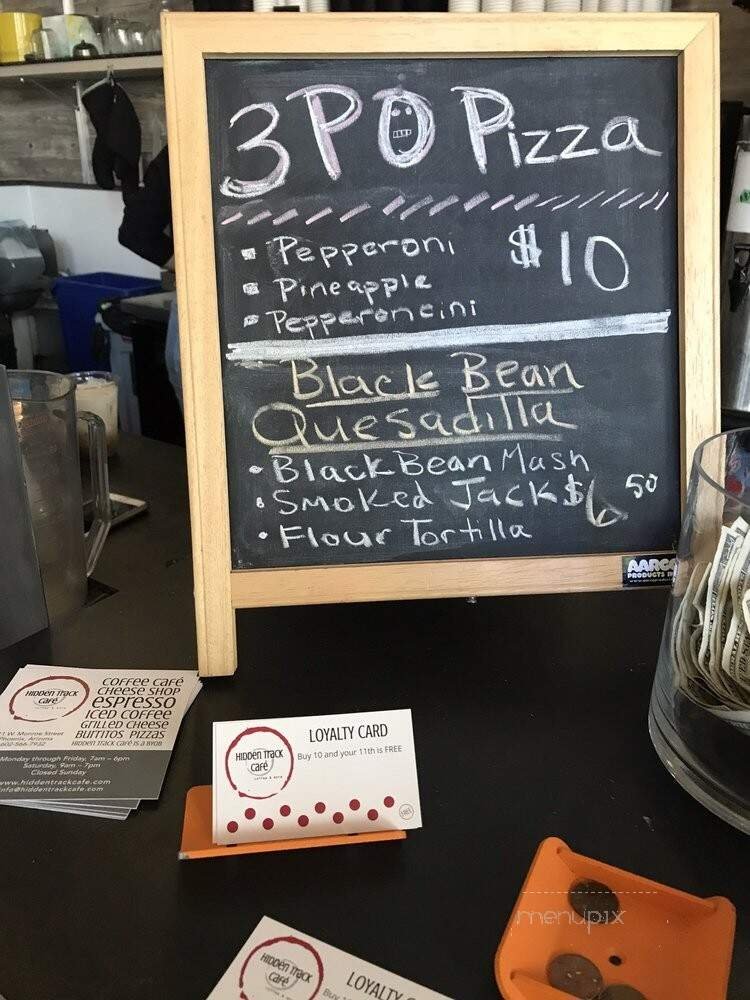 3PO Pizza
Pepperoni $10
Pineapple
Pepperoncini
Black Bean
Quesadilla
Black Bean Mash
Smoked Jack $6 50
Flour Tortilla
AARCO
PRODUCTS
HIDDEN TRACK
CAFÉ
COFFEE CAFÉ
CHEESE SHOP
ESPRESSO
ICED COFFEE
GRILLED CHEESE
BURRITOS PIZZAS
HIDDEN TRACK CAFÉ IS A BYOB
W. Monroe Street
Phoenix, Arizona
602-566-7932
Monday through Friday, 7am – 6pm
Saturday, 9am – 7pm
Closed Sunday
www.hiddentrackcafe.com
info@hiddentrackcafe.com
HIDDEN TRACK
CAFÉ
coffee & more
LOYALTY CARD
Buy 10 and your 11th is FREE
FREE
HIDDEN TRACK
CAFÉ
LOYALTY C
Buy 1
menupix